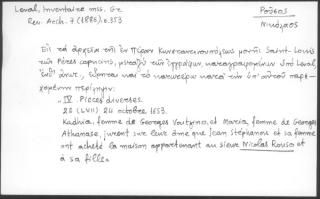 Laval, Inventaire mss. Gr.
Rev. Arch. 7 (1886) σ.353
Ροῦσος
Νικόλαος
Εἰς τὰ ἀρχεῖα τῆς ἐν Πέραν Κωνσταντινουπόλεως μονῆς Saint-Louis
τῶν Pères capucins, μεταξὺ τῶν ἐγγράφων, καταγραφομένων ὑπὸ Laval,
καὶ τὸ κατωτέρω κατὰ τὴν ὑπ' αὐτοῦ
περίληψιν:
"IV. Pièces diverses.
28 (LVII) 24 octobre 1653.
Kadhia, femme de Georges Voutzino, et Maria, femme de Georges
Athanase, jurent sur leur âme que Jean Stéphanos et sa femme
ont acheté la maison appartenant au sieur Nicolas Rousso et
à sa fille"